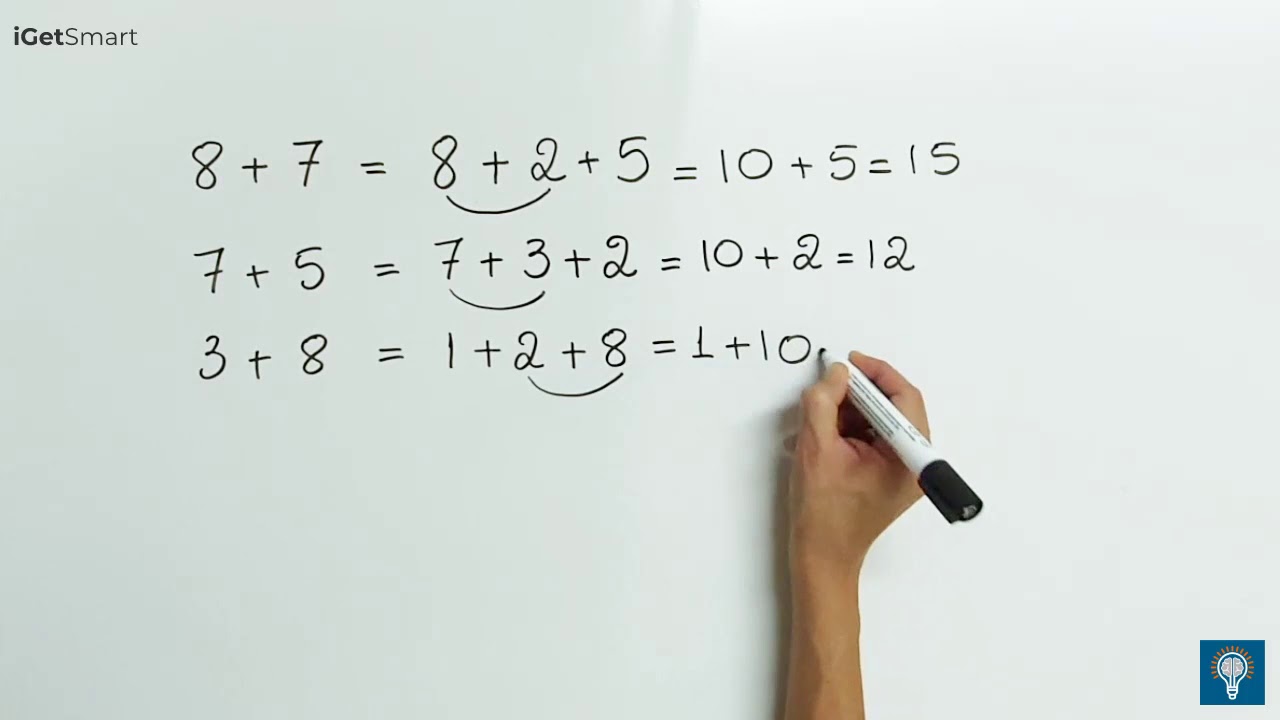 iGetSmart
8 + 7 = 8 + 2 + 5 = 10 + 5 = 15
7 + 5 = 7 + 3 + 2 = 10 + 2 = 12
3 + 8 = 1 + 2 + 8 = 1 + 10